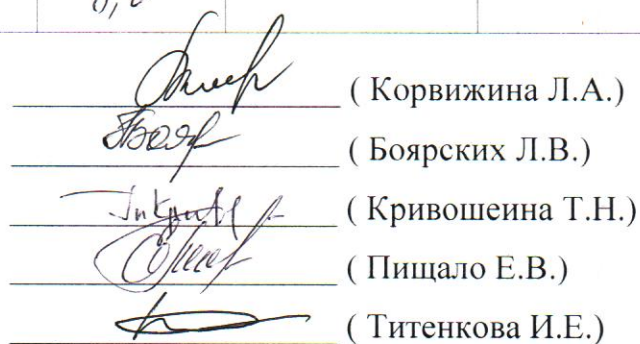 ( Корвижина Л.А.)
( Боярских Л.В.)
( Кривошеина Т.Н.)
( Пищало Е.В.)
( Титенкова И.Е.)